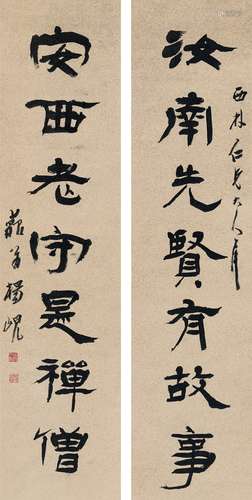 汝南先賢有故事
西林仁兄大人屬
安西老守是禪僧
藐翁楊峴